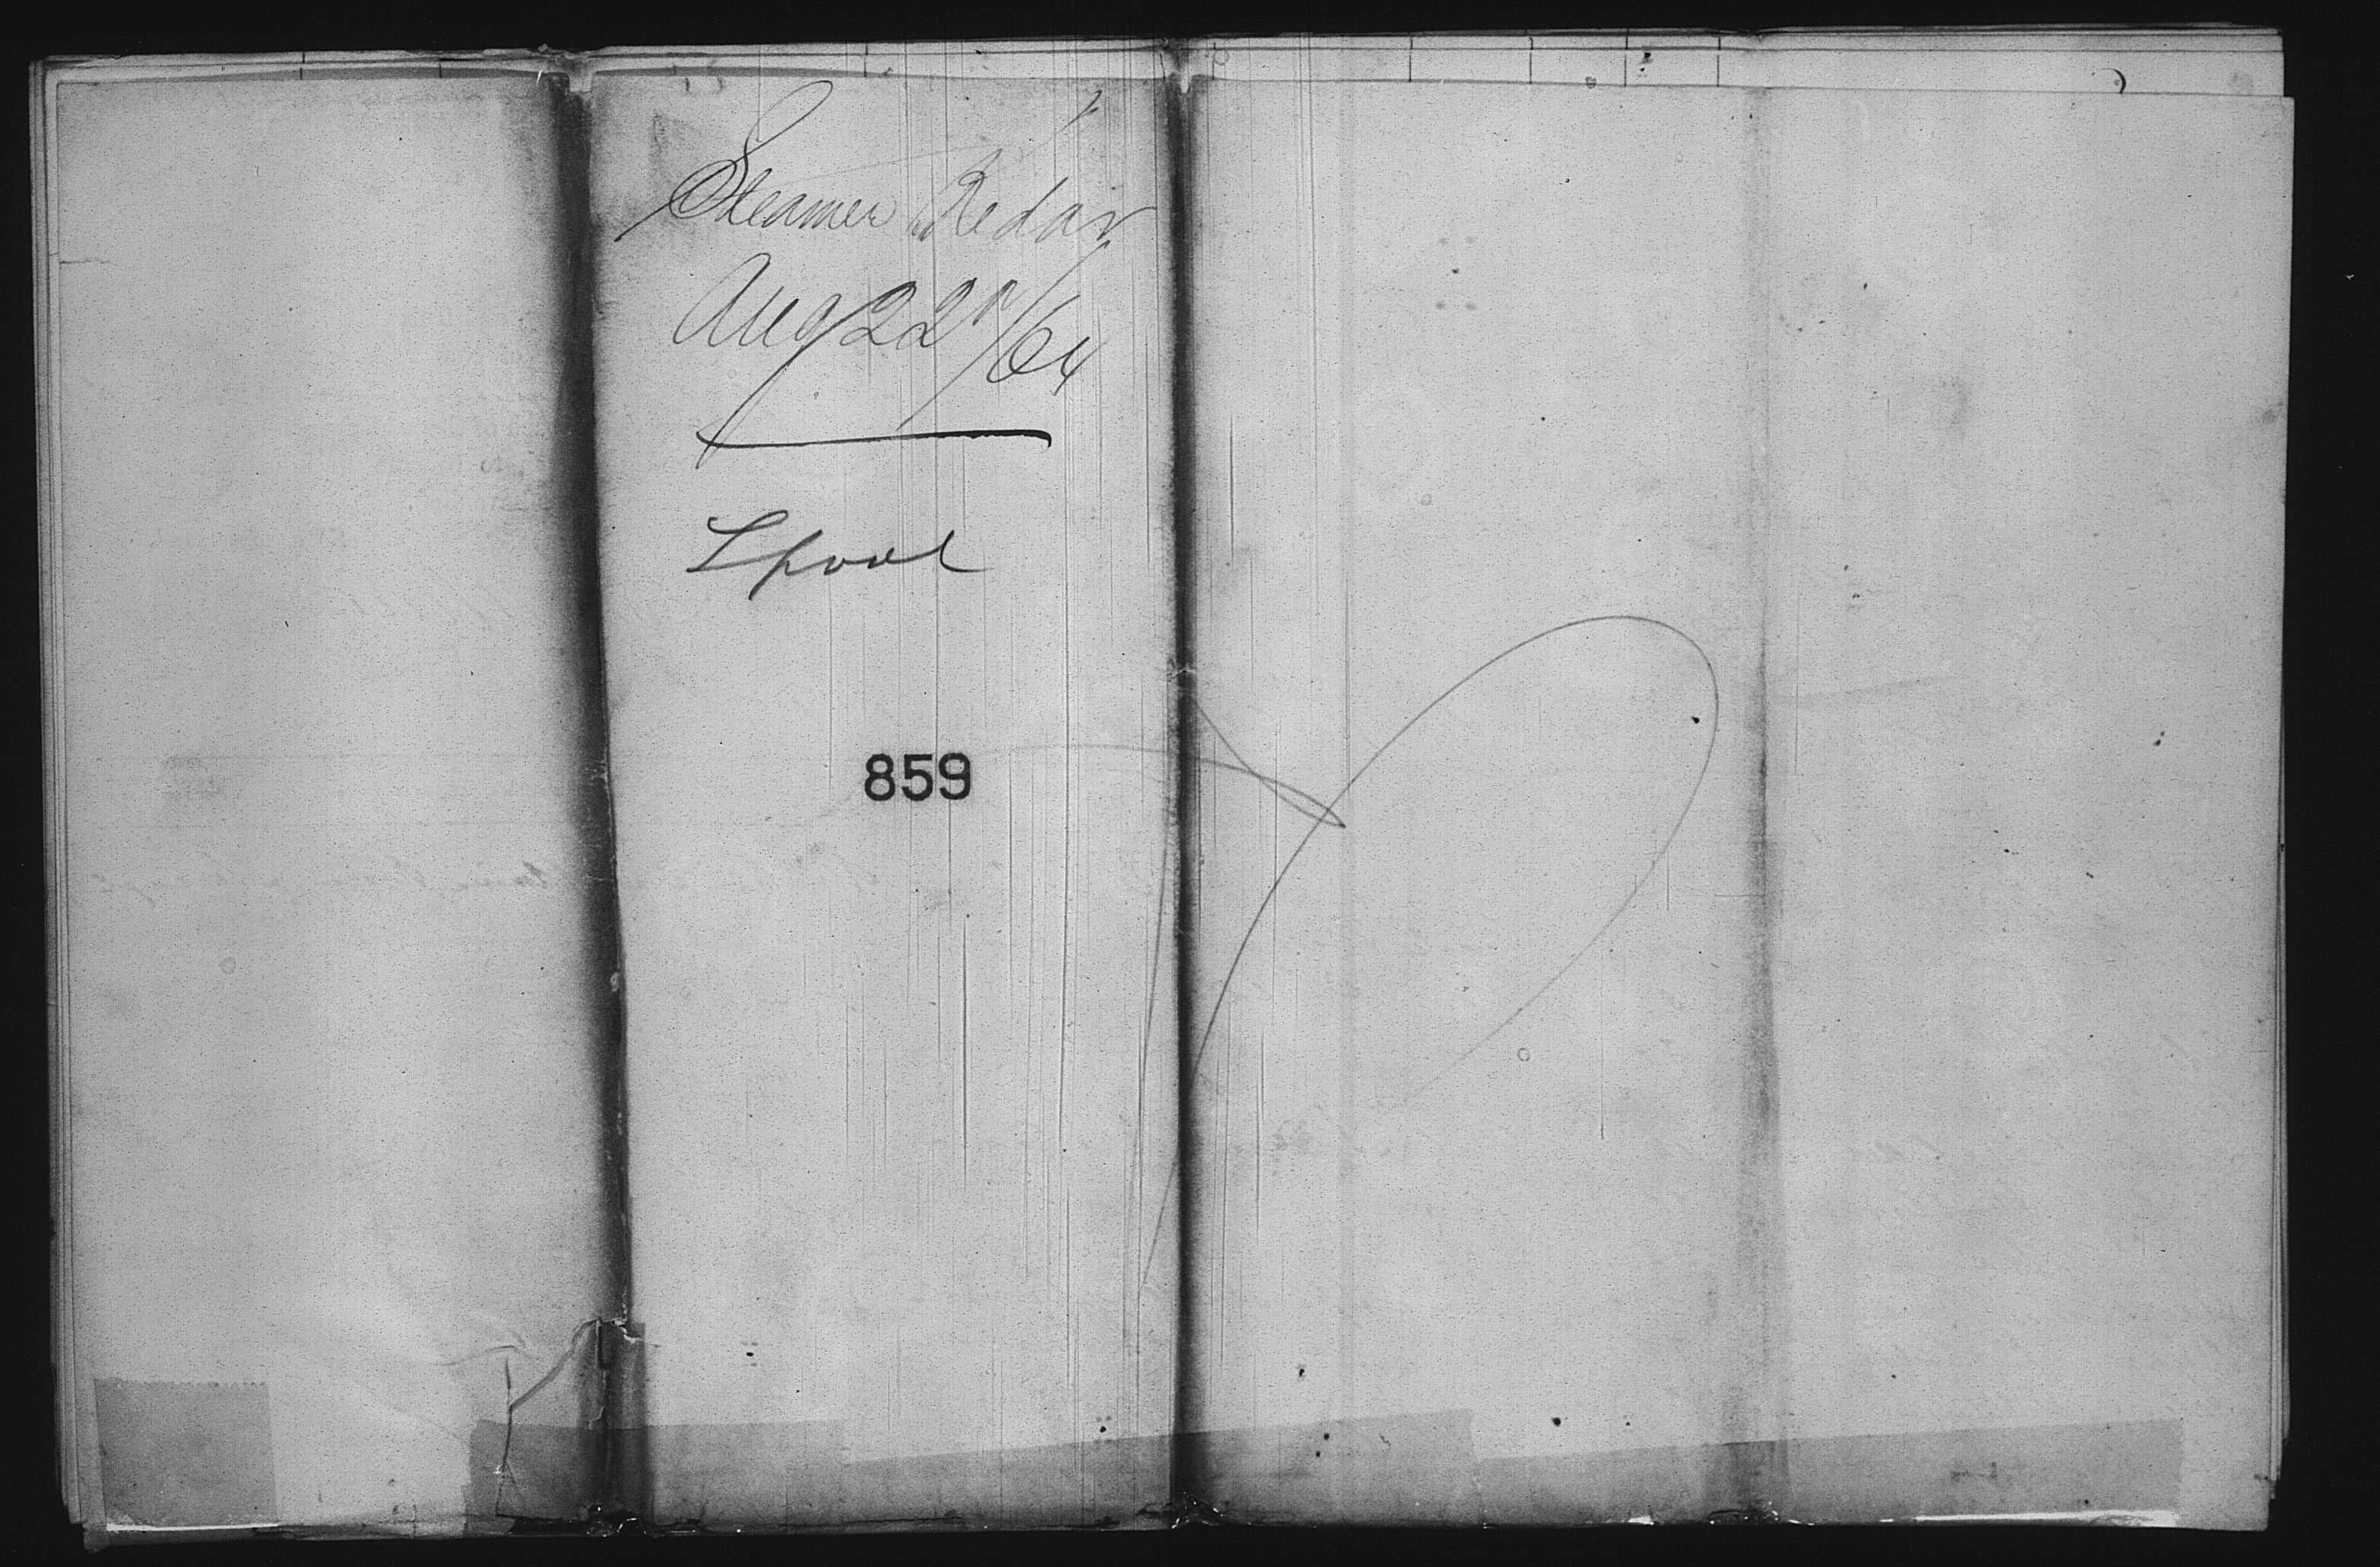 Steamer Kedar
Aug 22ⁿ/64
Lpool
859